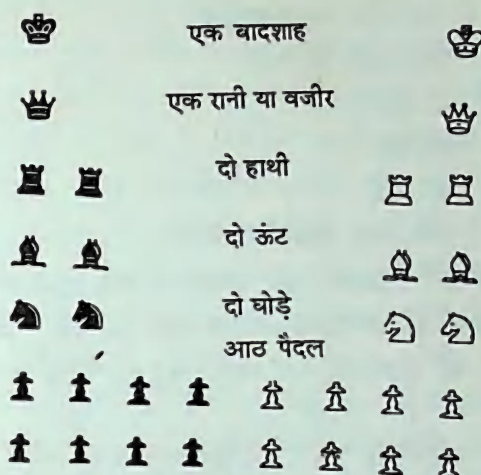 एक बादशाह
एक रानी या वजीर
दो हाथी
दो ऊंट
दो घोड़े
आठ पैदल